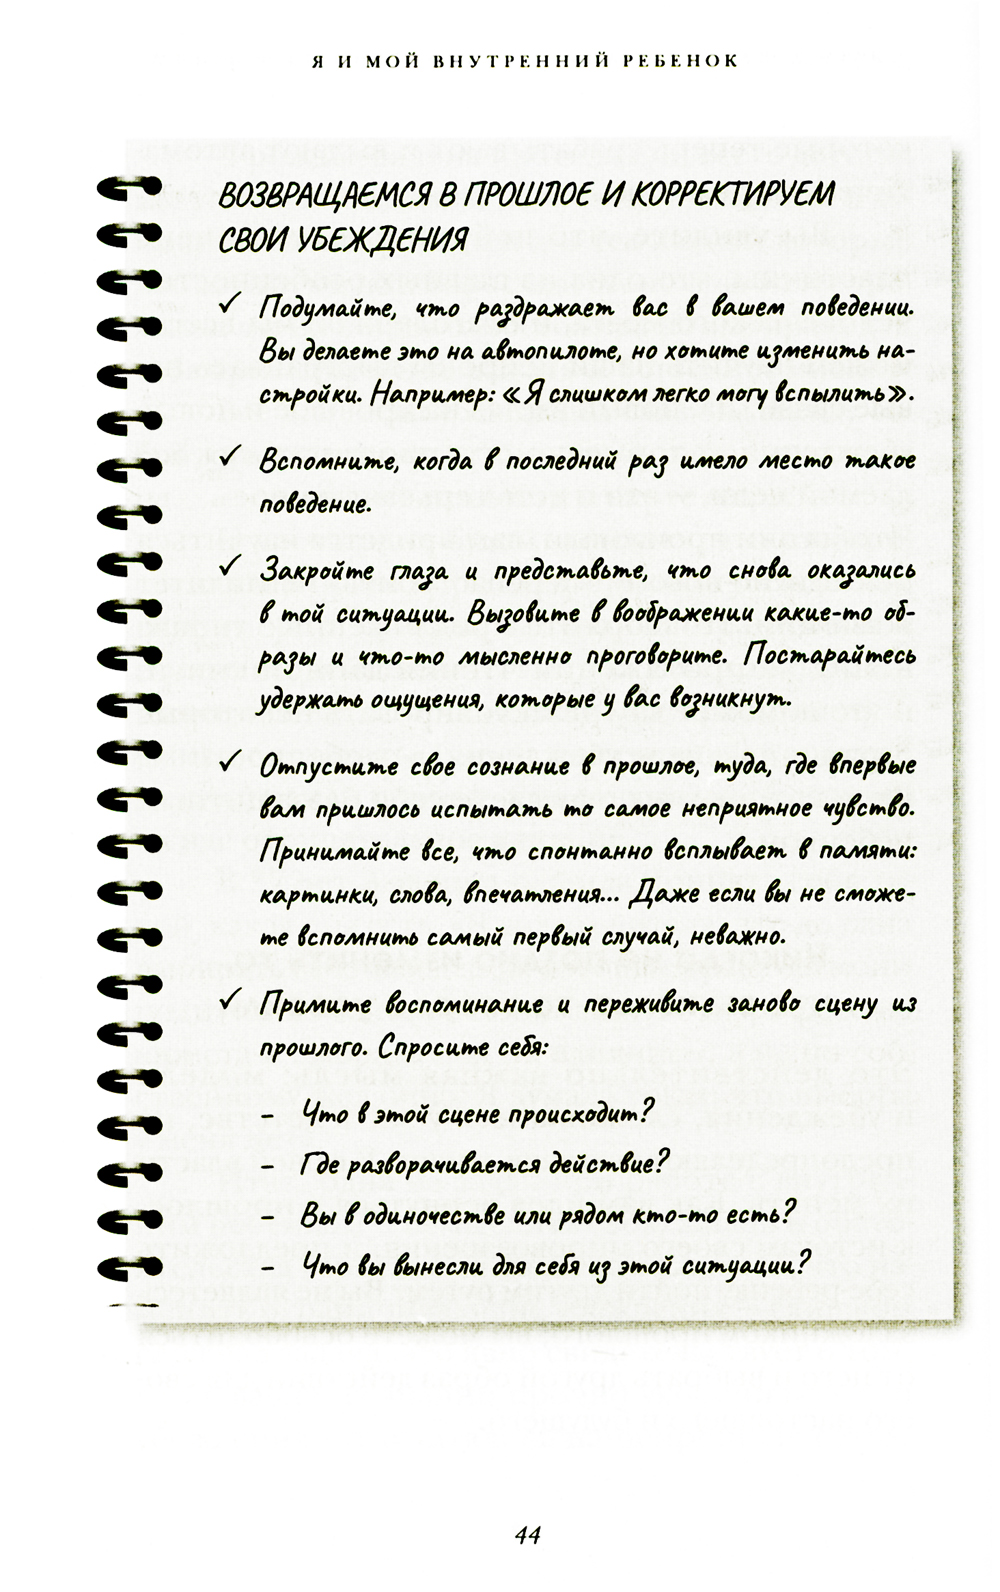 Я И МОЙ ВНУТРЕННИЙ РЕБЕНОК
ВОЗВРАЩАЕМСЯ В ПРОШЛОЕ И КОРРЕКТИРУЕМ
СВОИ УБЕЖДЕНИЯ
✓ Подумайте, что раздражает вас в вашем поведении.
Вы делаете это на автопилоте, но хотите изменить на-
стройки. Например: «Я слишком легко могу вспылить».
✓ Вспомните, когда в последний раз имело место такое
поведение.
✓ Закройте глаза и представьте, что снова оказались
в той ситуации. Вызовите в воображении какие-то об-
разы и что-то мысленно проговорите. Постарайтесь
удержать ощущения, которые у вас возникнут.
✓ Отпустите свое сознание в прошлое, туда, где впервые
вам пришлось испытать то самое неприятное чувство.
Принимайте все, что спонтанно всплывает в памяти:
картинки, слова, впечатления... Даже если вы не сможе-
те вспомнить самый первый случай, неважно.
✓ Примите воспоминание и переживите заново сцену из
прошлого. Спросите себя:
– Что в этой сцене происходит?
– Где разворачивается действие?
– Вы в одиночестве или рядом кто-то есть?
– Что вы вынесли для себя из этой ситуации?
44